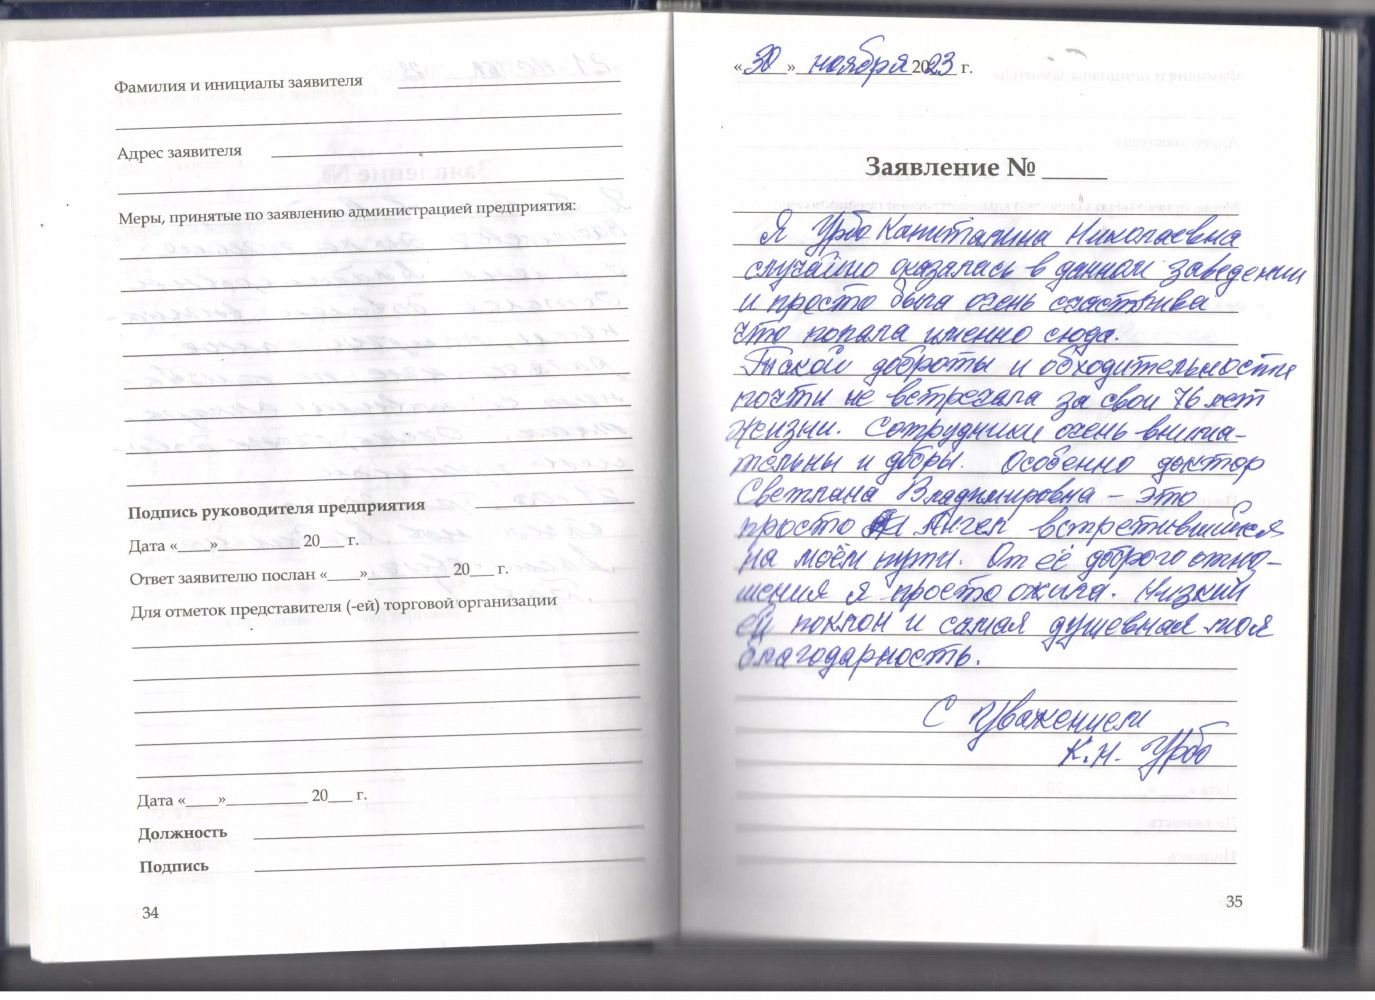 Фамилия и инициалы заявителя
Адрес заявителя
Меры, принятые по заявлению администрацией предприятия:
Подпись руководителя предприятия
Дата «____»__________ 20___ г.
Ответ заявителю послан «____»__________ 20___ г.
Для отметок представителя (-ей) торговой организации
Дата «____»__________ 20___ г.
Должность
Подпись
34
«30» ноября 2023 г.
Заявление № _____
Я Урбо Капиталина Николаевна
случайно оказалась в данном заведении
и просто была очень счастлива
что попала именно сюда.
Такой доброты и обходительности
почти не встречала за свои 76 лет
жизни. Сотрудники очень внима-
тельны и добры. Особенно доктор
Светлана Владимировна – это
просто Ангел встретившийся
на моём пути. От её доброго отно-
шения я просто ожила. Низкий
ей поклон и самая душевная моя
благодарность.
С Уважением
К.Н. Урбо
35